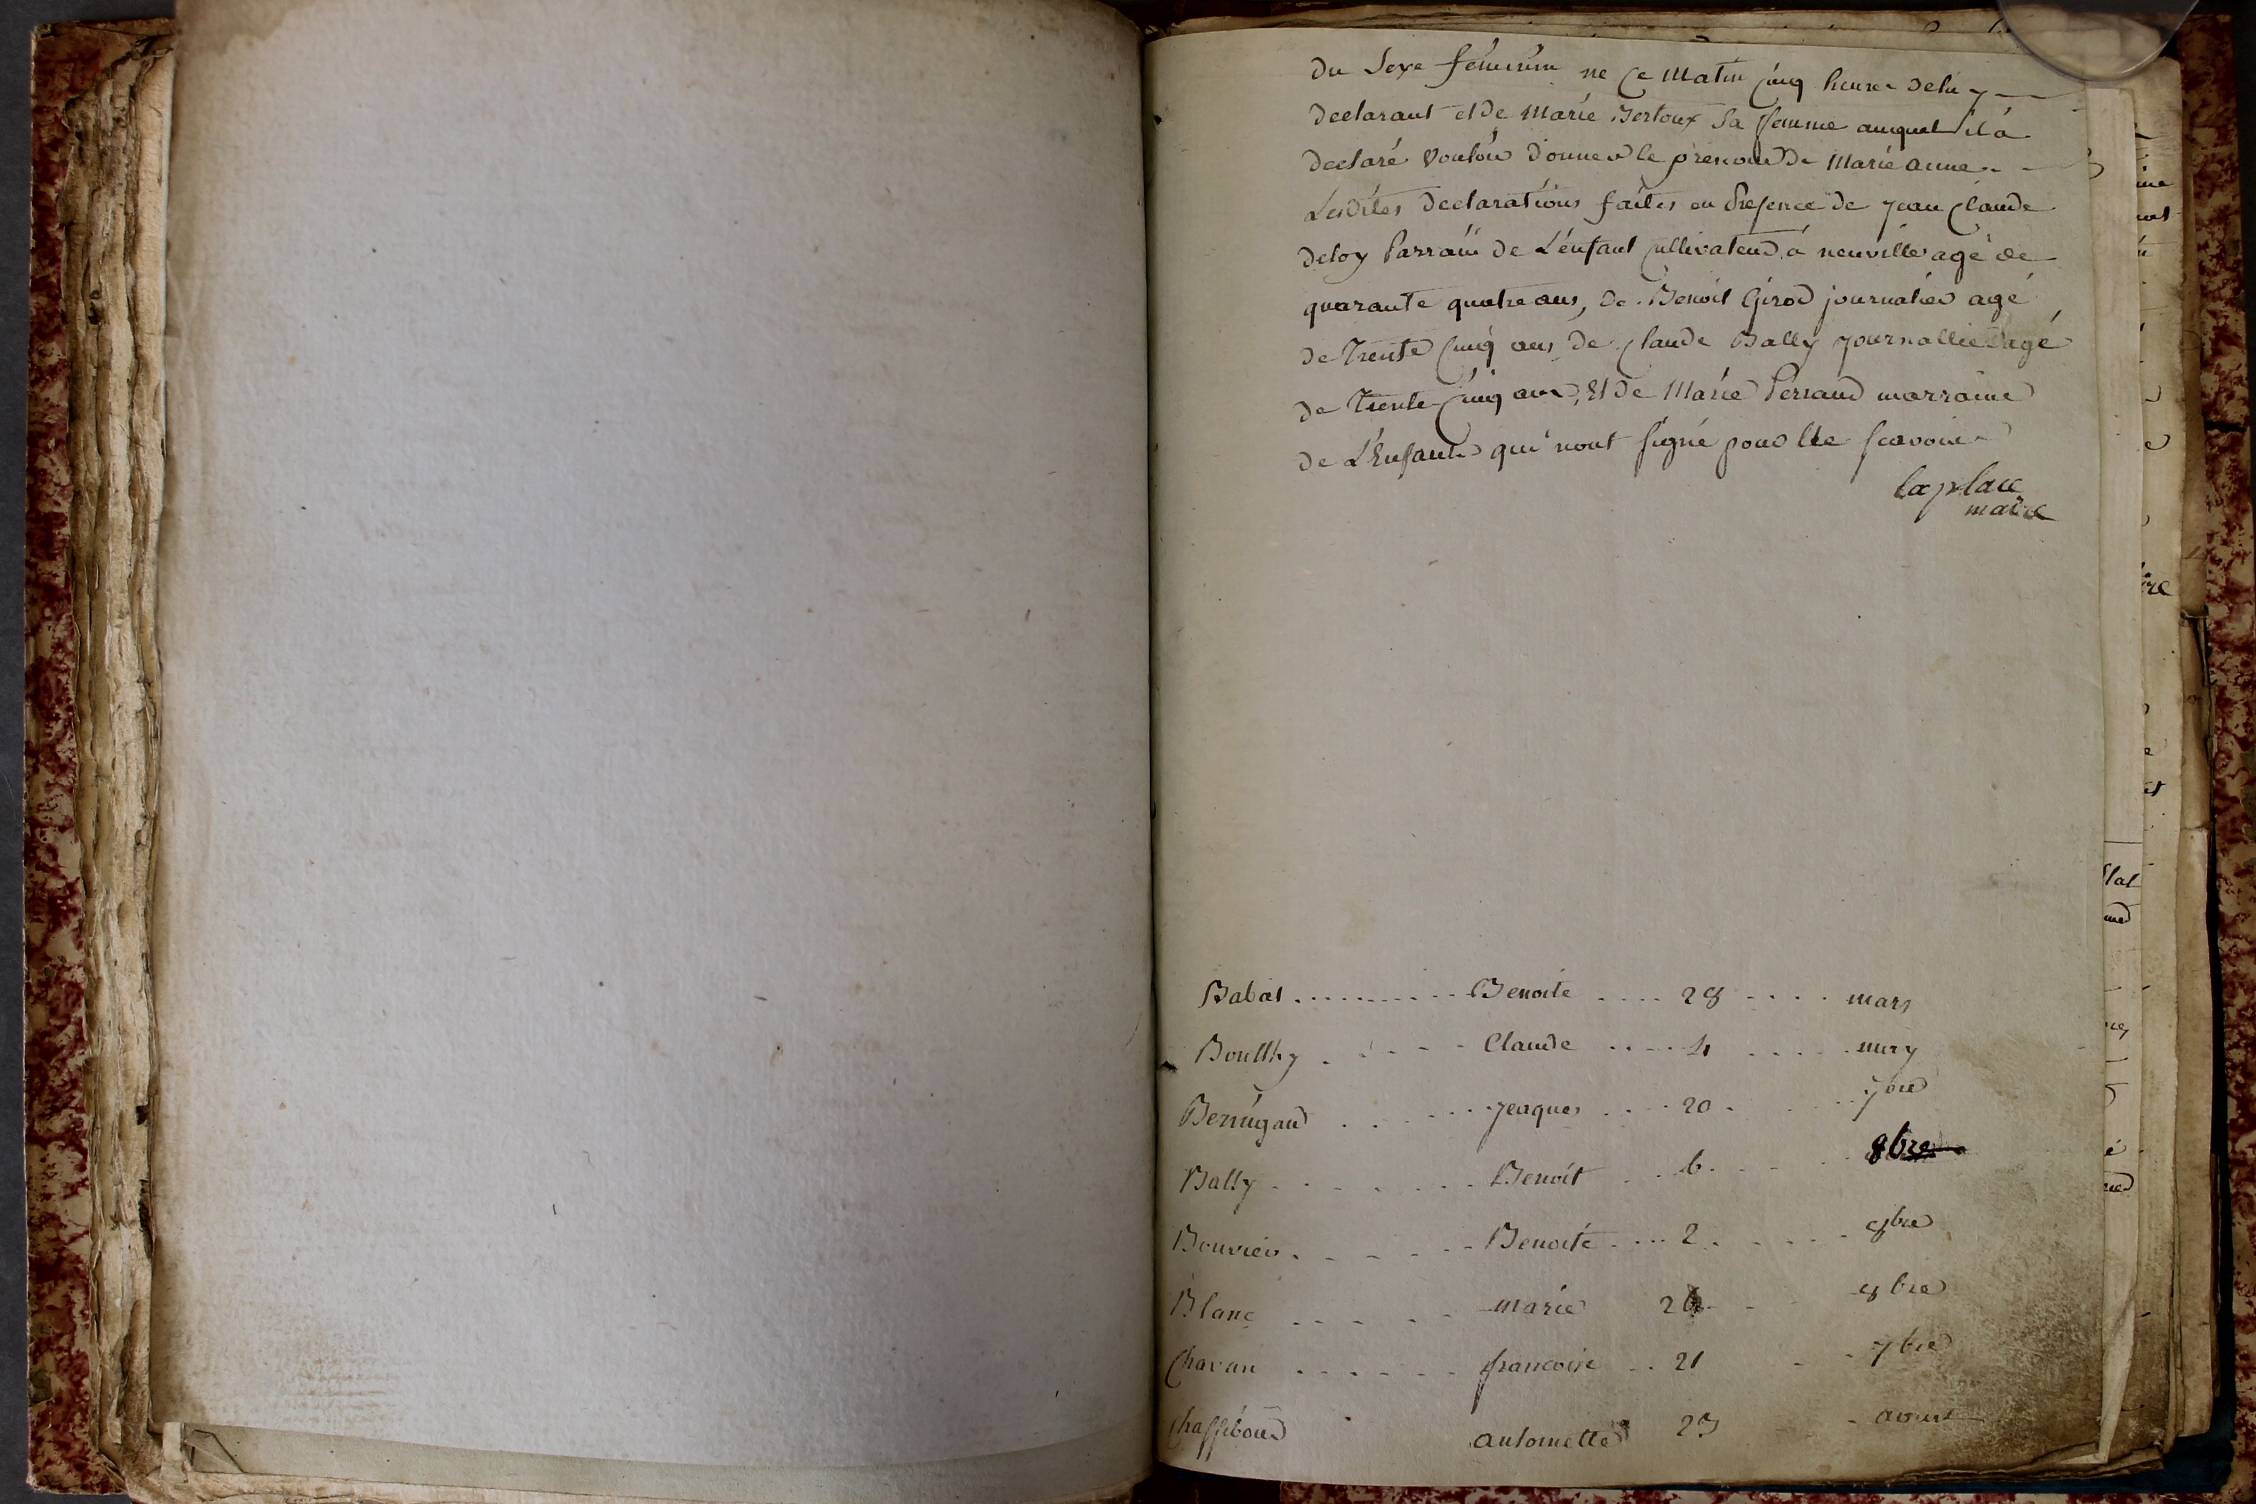 du Sexe féminin ne ce matin cinq heures de lui
declarant et de marie Bertoux Sa femme auquel il a
declaré vouloir donner le prenom de Marie anne
Lesdites declarations faites en presence de jean Claude
deloy Parrain de L'enfant cultivateur a neuville agé de
quarante quatre ans, de Benoit Girod journalier agé
de Trente cinq ans de Claude Bally journallier agé
de Trente cinq ans, Et de Marie Perraud marraine
de L'Enfant qui n'ont signé pour ne scavoir
laplace
maire
Babat Benoite 28 mars
Claude 4
jacques 20 7bre
Bally Benoit 6 8bre
Bouvier Benoite 2 8bre
Blanc marie 8bre
Chavan francoise 21 7bre
antoinette